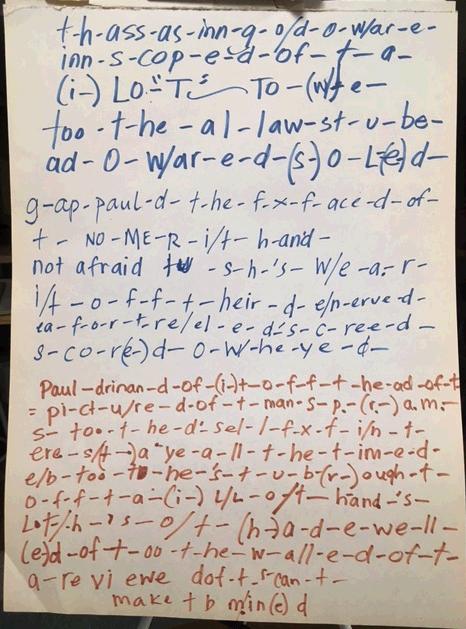 t-h-ass-as-inn-g-o/d-o-w/ar-e-
inn-s-cop-e-d-of-t-a-
(i-) LO-"T"s To-(w/t-e-
too-t-he-al-law-st-u-be-
ad-O-W/ar-e-d-(s-)O-L(e)d-
g-ap-paul-d-t-he-f-x-f-ace-d-of-
t- NO-ME-R-i/t-h-and-
not afraid -s-h-'s-W/e-a-r-
i/t-o-f-f-t-heir-d-e/n-erve-d-
ea-f-o-r-t-re/el-e-d's-c-ree-d-
s-co-r(e-)d-O-W-he-ye-d-
Paul-drinan-d-of-(i-)t-o-f-f-t-he-ad-of-t
= pi-ct-u/re-d-of-t-man-s-p-(r-)a.m.-
s- too-t-he-d'-sel-l-f-x-f-i/n-t-
ere-s/t-)a-ye-a-ll-t-he-t-im-e-d-
e/b-too-to-he-'s-t-u-b-(r-)ough-t-
o-f-f-t-a-(i-) L/L-o/t-hand-'s-
Lot/h-'s-o/t-(h-)a-d-e-we-ll-
(e)d-of-t-oo-t-he-w-all-e-d-of-t-
a-re vi ewe dof-t-s-can-t-
make t b min(e) d